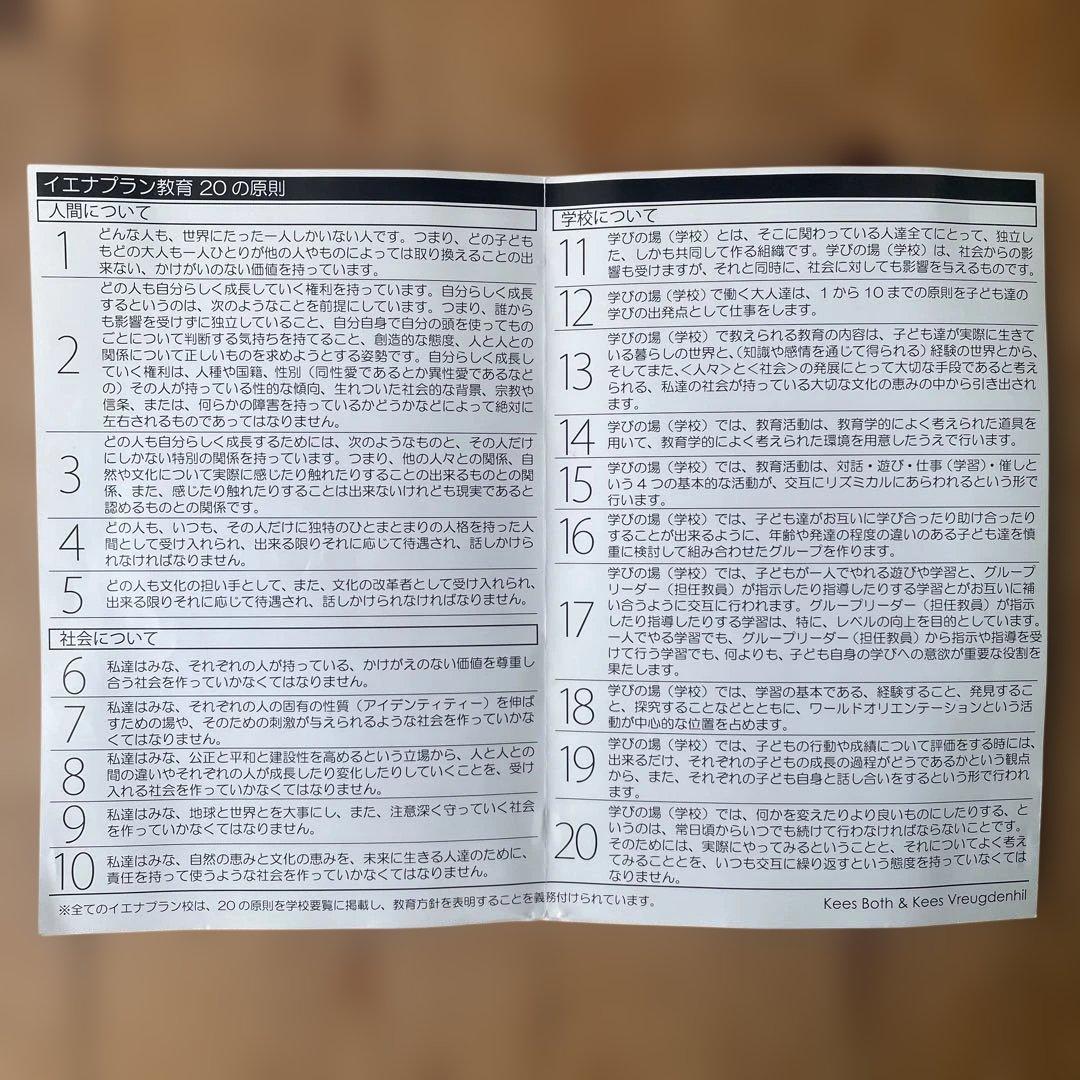 イエナプラン教育 20 の原則
人間について
1
どんな人も、世界にたった一人しかいない人です。つまり、どの子ども
もどの大人も一人ひとりが他の人やものによっては取り換えることの出
来ない、かけがいのない価値を持っています。
2
どの人も自分らしく成長していく権利を持っています。自分らしく成長
するというのは、次のようなことを前提にしています。つまり、誰から
も影響を受けずに独立していること、自分自身で自分の頭を使ってもの
ごとについて判断する気持ちを持てること、創造的な態度、人と人との
関係について正しいものを求めようとする姿勢です。自分らしく成長し
ていく権利は、人種や国籍、性別（同性愛であるとか異性愛であるなど
の）その人が持っている性的な傾向、生れついた社会的な背景、宗教や
信条、または、何らかの障害を持っているかどうかなどによって絶対に
左右されるものであってはなりません。
3
どの人も自分らしく成長するためには、次のようなものと、その人だけ
にしかない特別の関係を持っています。つまり、他の人々との関係、自
然や文化について実際に感じたり触れたりすることの出来るものとの関
係、また、感じたり触れたりすることは出来ないけれども現実であると
認めるものとの関係です。
4
どの人も、いつも、その人だけに独特のひとまとまりの人格を持った人
間として受け入れられ、出来る限りそれに応じて待遇され、話しかけら
れなければなりません。
5
どの人も文化の担い手として、また、文化の改革者として受け入れられ、
出来る限りそれに応じて待遇され、話しかけられなければなりません。
社会について
6
私達はみな、それぞれの人が持っている、かけがえのない価値を尊重し
合う社会を作っていかなくてはなりません。
7
私達はみな、それぞれの人の固有の性質（アイデンティティー）を伸ば
すための場や、そのための刺激が与えられるような社会を作っていかな
くてはなりません。
8
私達はみな、公正と平和と建設性を高めるという立場から、人と人との
間の違いやそれぞれの人が成長したり変化したりしていくことを、受け
入れる社会を作っていかなくてはなりません。
9
私達はみな、地球と世界とを大事にし、また、注意深く守っていく社会
を作っていかなくてはなりません。
10
私達はみな、自然の恵みと文化の恵みを、未来に生きる人達のために、
責任を持って使うような社会を作っていかなくてはなりません。
※全てのイエナプラン校は、20 の原則を学校要覧に掲載し、教育方針を表明することを義務付けられています。
学校について
11
学びの場（学校）とは、そこに関わっている人達全てにとって、独立し
た、しかも共同して作る組織です。学びの場（学校）は、社会からの影
響も受けますが、それと同時に、社会に対しても影響を与えるものです。
12
学びの場（学校）で働く大人達は、1 から 10 までの原則を子ども達の
学びの出発点として仕事をします。
13
学びの場（学校）で教えられる教育の内容は、子ども達が実際に生きて
いる暮らしの世界と、（知識や感情を通じて得られる）経験の世界とから、
そしてまた、＜人々＞と＜社会＞の発展にとって大切な手段であると考え
られる、私達の社会が持っている大切な文化の恵みの中から引き出され
ます。
14
学びの場（学校）では、教育活動は、教育学的によく考えられた道具を
用いて、教育学的によく考えられた環境を用意したうえで行います。
15
学びの場（学校）では、教育活動は、対話・遊び・仕事（学習）・催しと
いう 4 つの基本的な活動が、交互にリズミカルにあらわれるという形で
行います。
16
学びの場（学校）では、子ども達がお互いに学び合ったり助け合ったり
することが出来るように、年齢や発達の程度の違いのある子ども達を慎
重に検討して組み合わせたグループを作ります。
17
学びの場（学校）では、子どもが一人でやれる遊びや学習と、グループ
リーダー（担任教員）が指示したり指導したりする学習とがお互いに補
い合うように交互に行われます。グループリーダー（担任教員）が指示
したり指導したりする学習は、特に、レベルの向上を目的としています。
一人でやる学習でも、グループリーダー（担任教員）から指示や指導を受
けて行う学習でも、何よりも、子ども自身の学びへの意欲が重要な役割を
果たします。
18
学びの場（学校）では、学習の基本である、経験すること、発見するこ
と、探究することなどとともに、ワールドオリエンテーションという活
動が中心的な位置を占めます。
19
学びの場（学校）では、子どもの行動や成績について評価をする時には、
出来るだけ、それぞれの子どもの成長の過程がどうであるかという観点
から、また、それぞれの子ども自身と話し合いをするという形で行われ
ます。
20
学びの場（学校）では、何かを変えたりより良いものにしたりする、と
いうのは、常日頃からいつでも続けて行わなければならないことです。
そのためには、実際にやってみるということと、それについてよく考え
てみることとを、いつも交互に繰り返すという態度を持っていなくては
なりません。
Kees Both & Kees Vreugdenhil